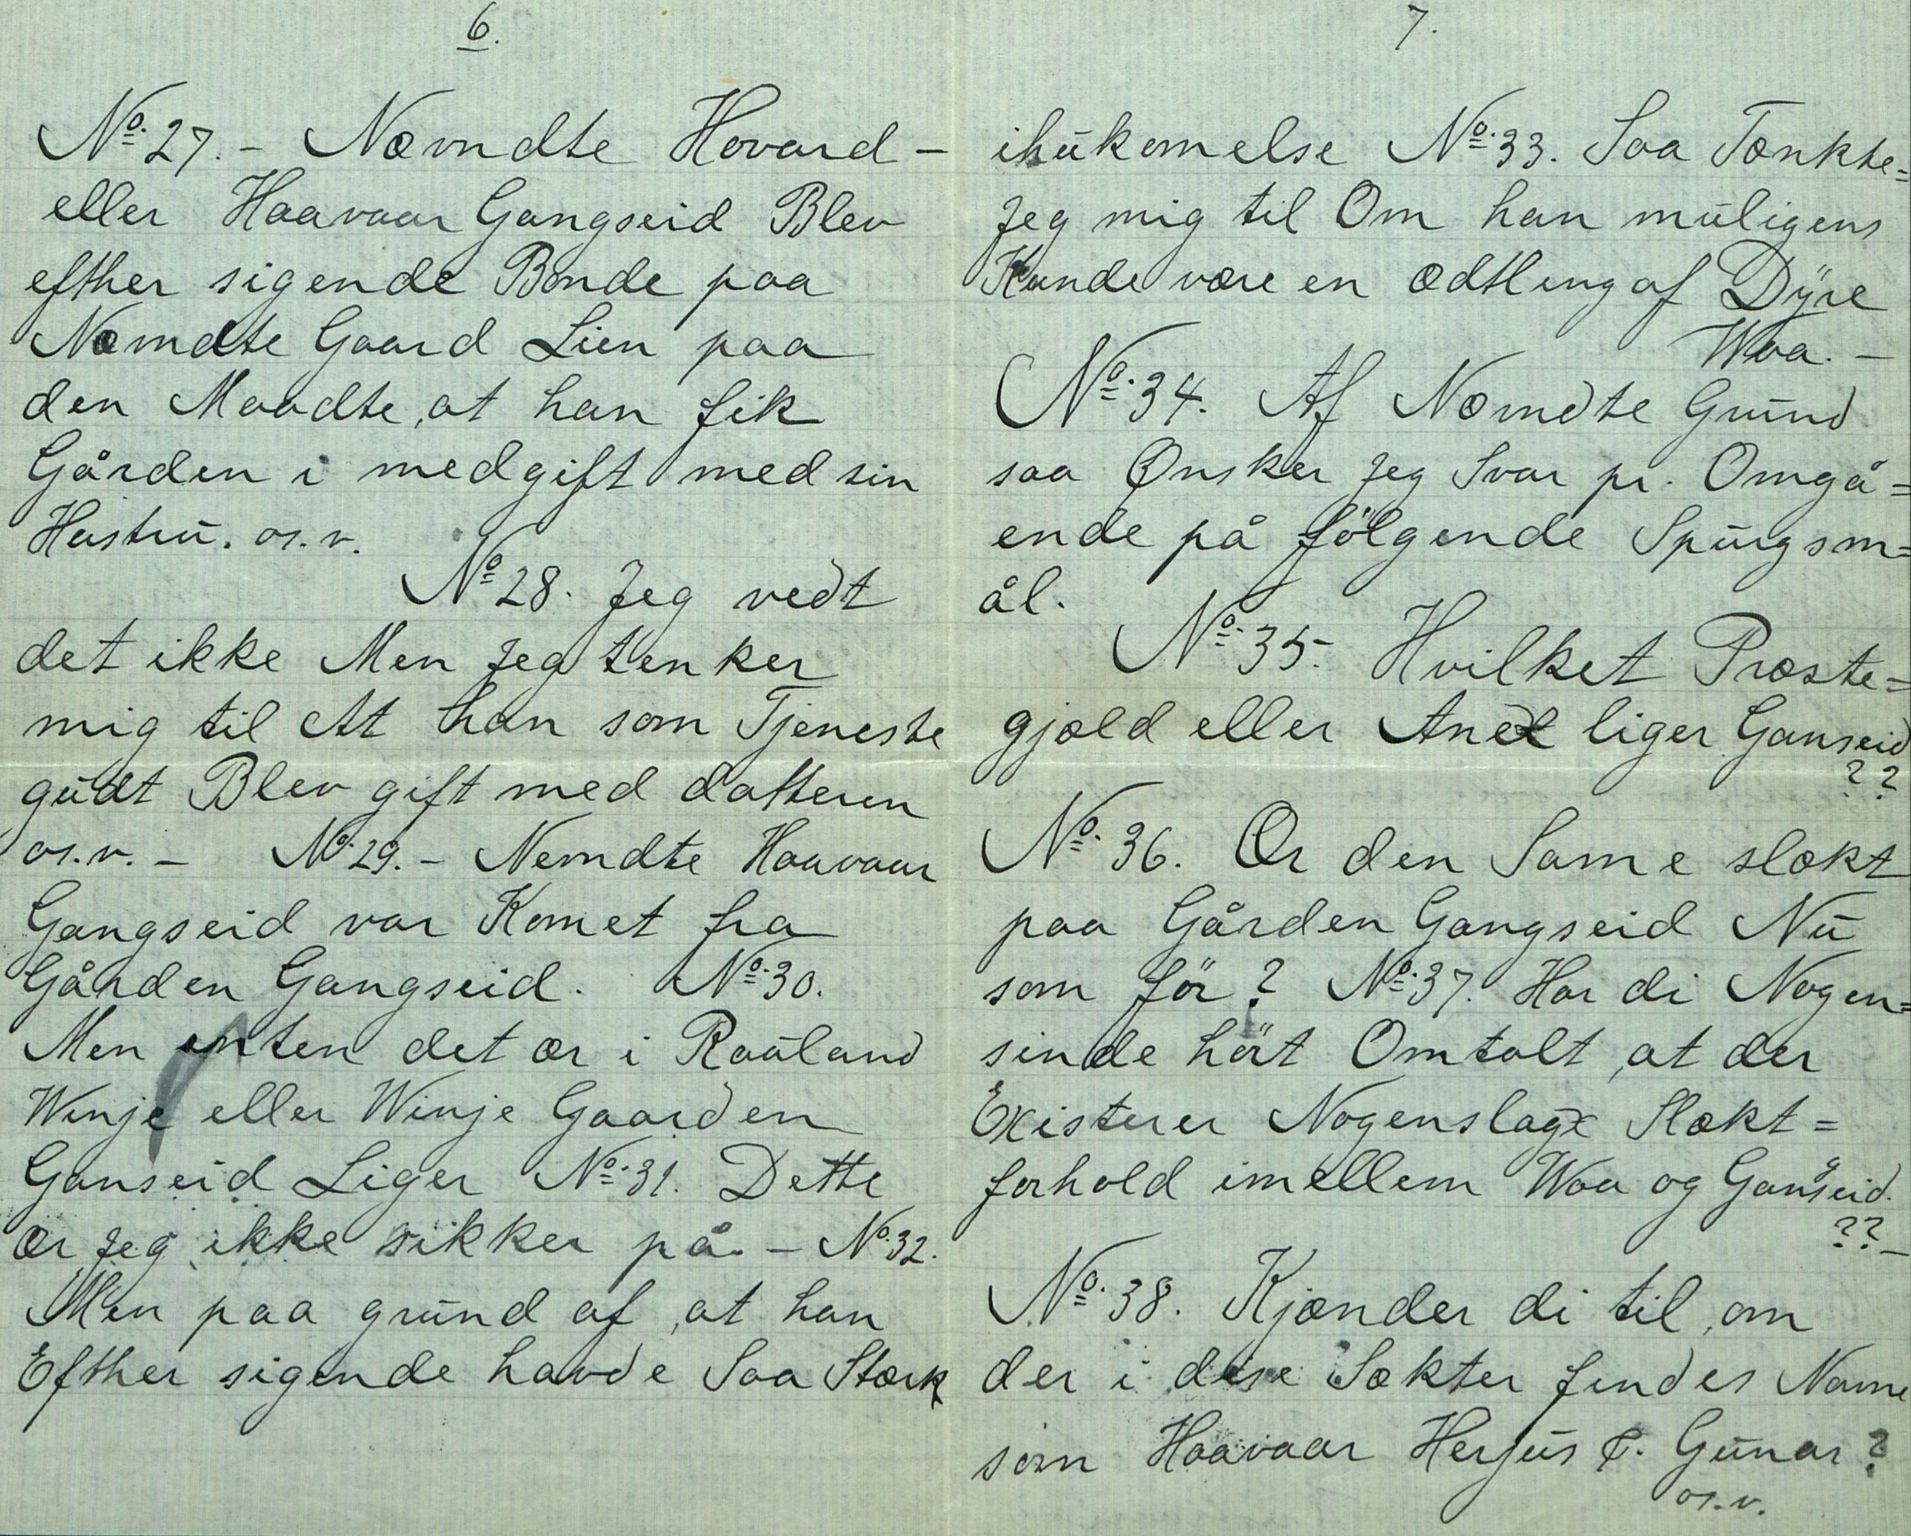 6.
No. 27. - Nævndte Hovard -
eller Haavaar Gangseid Blev
efther sigende Bonde paa
Næmdte Gaard Lien paa
den Maadte, at han fik
Gården i medgift med sin
Hustru. os.v.
No. 28. Jeg vedt
det ikke Men Jeg tenker
mig til At han som Tjeneste
gudt Blev gift med datteren
os.v. - No. 29. - Nemdte Haavaar
Gangseid var Komet fra
Gården Gangseid. No. 30.
Men enten det ær i Rauland
Winje eller Winje Gaarden
Ganseid Liger No. 31. Dette
ær Jeg ikke sikker på. - No. 32.
Men paa grund af, at han
Efther sigende havde Saa Stærk
7.
ihukomelse No. 33. Saa Tænkte=
Jeg mig til Om han muligens
Kunde være en ædtling af Dyre
Waa. -
No. 34. Af Næmdte Grund
saa Ønsker Jeg Svar pr. Omgå=
ende på følgende Spurgsm=
ål.
No. 35. Hvilket Præste=
gjæld eller Anex liger Ganseid
??
No. 36. Ær den Same slækt
paa Gården Gangseid Nu
som før? No. 37. Har di Nogen=
sinde hørt Omtalt, at der
Existerer Nogenslags Slækt=
forhold imellem Waa og Ganseid.
?? -
No. 38. Kjænder di til, om
der i dese Sækter findes Navne
som Haavaar Herjus &. Gunar?
os.v.